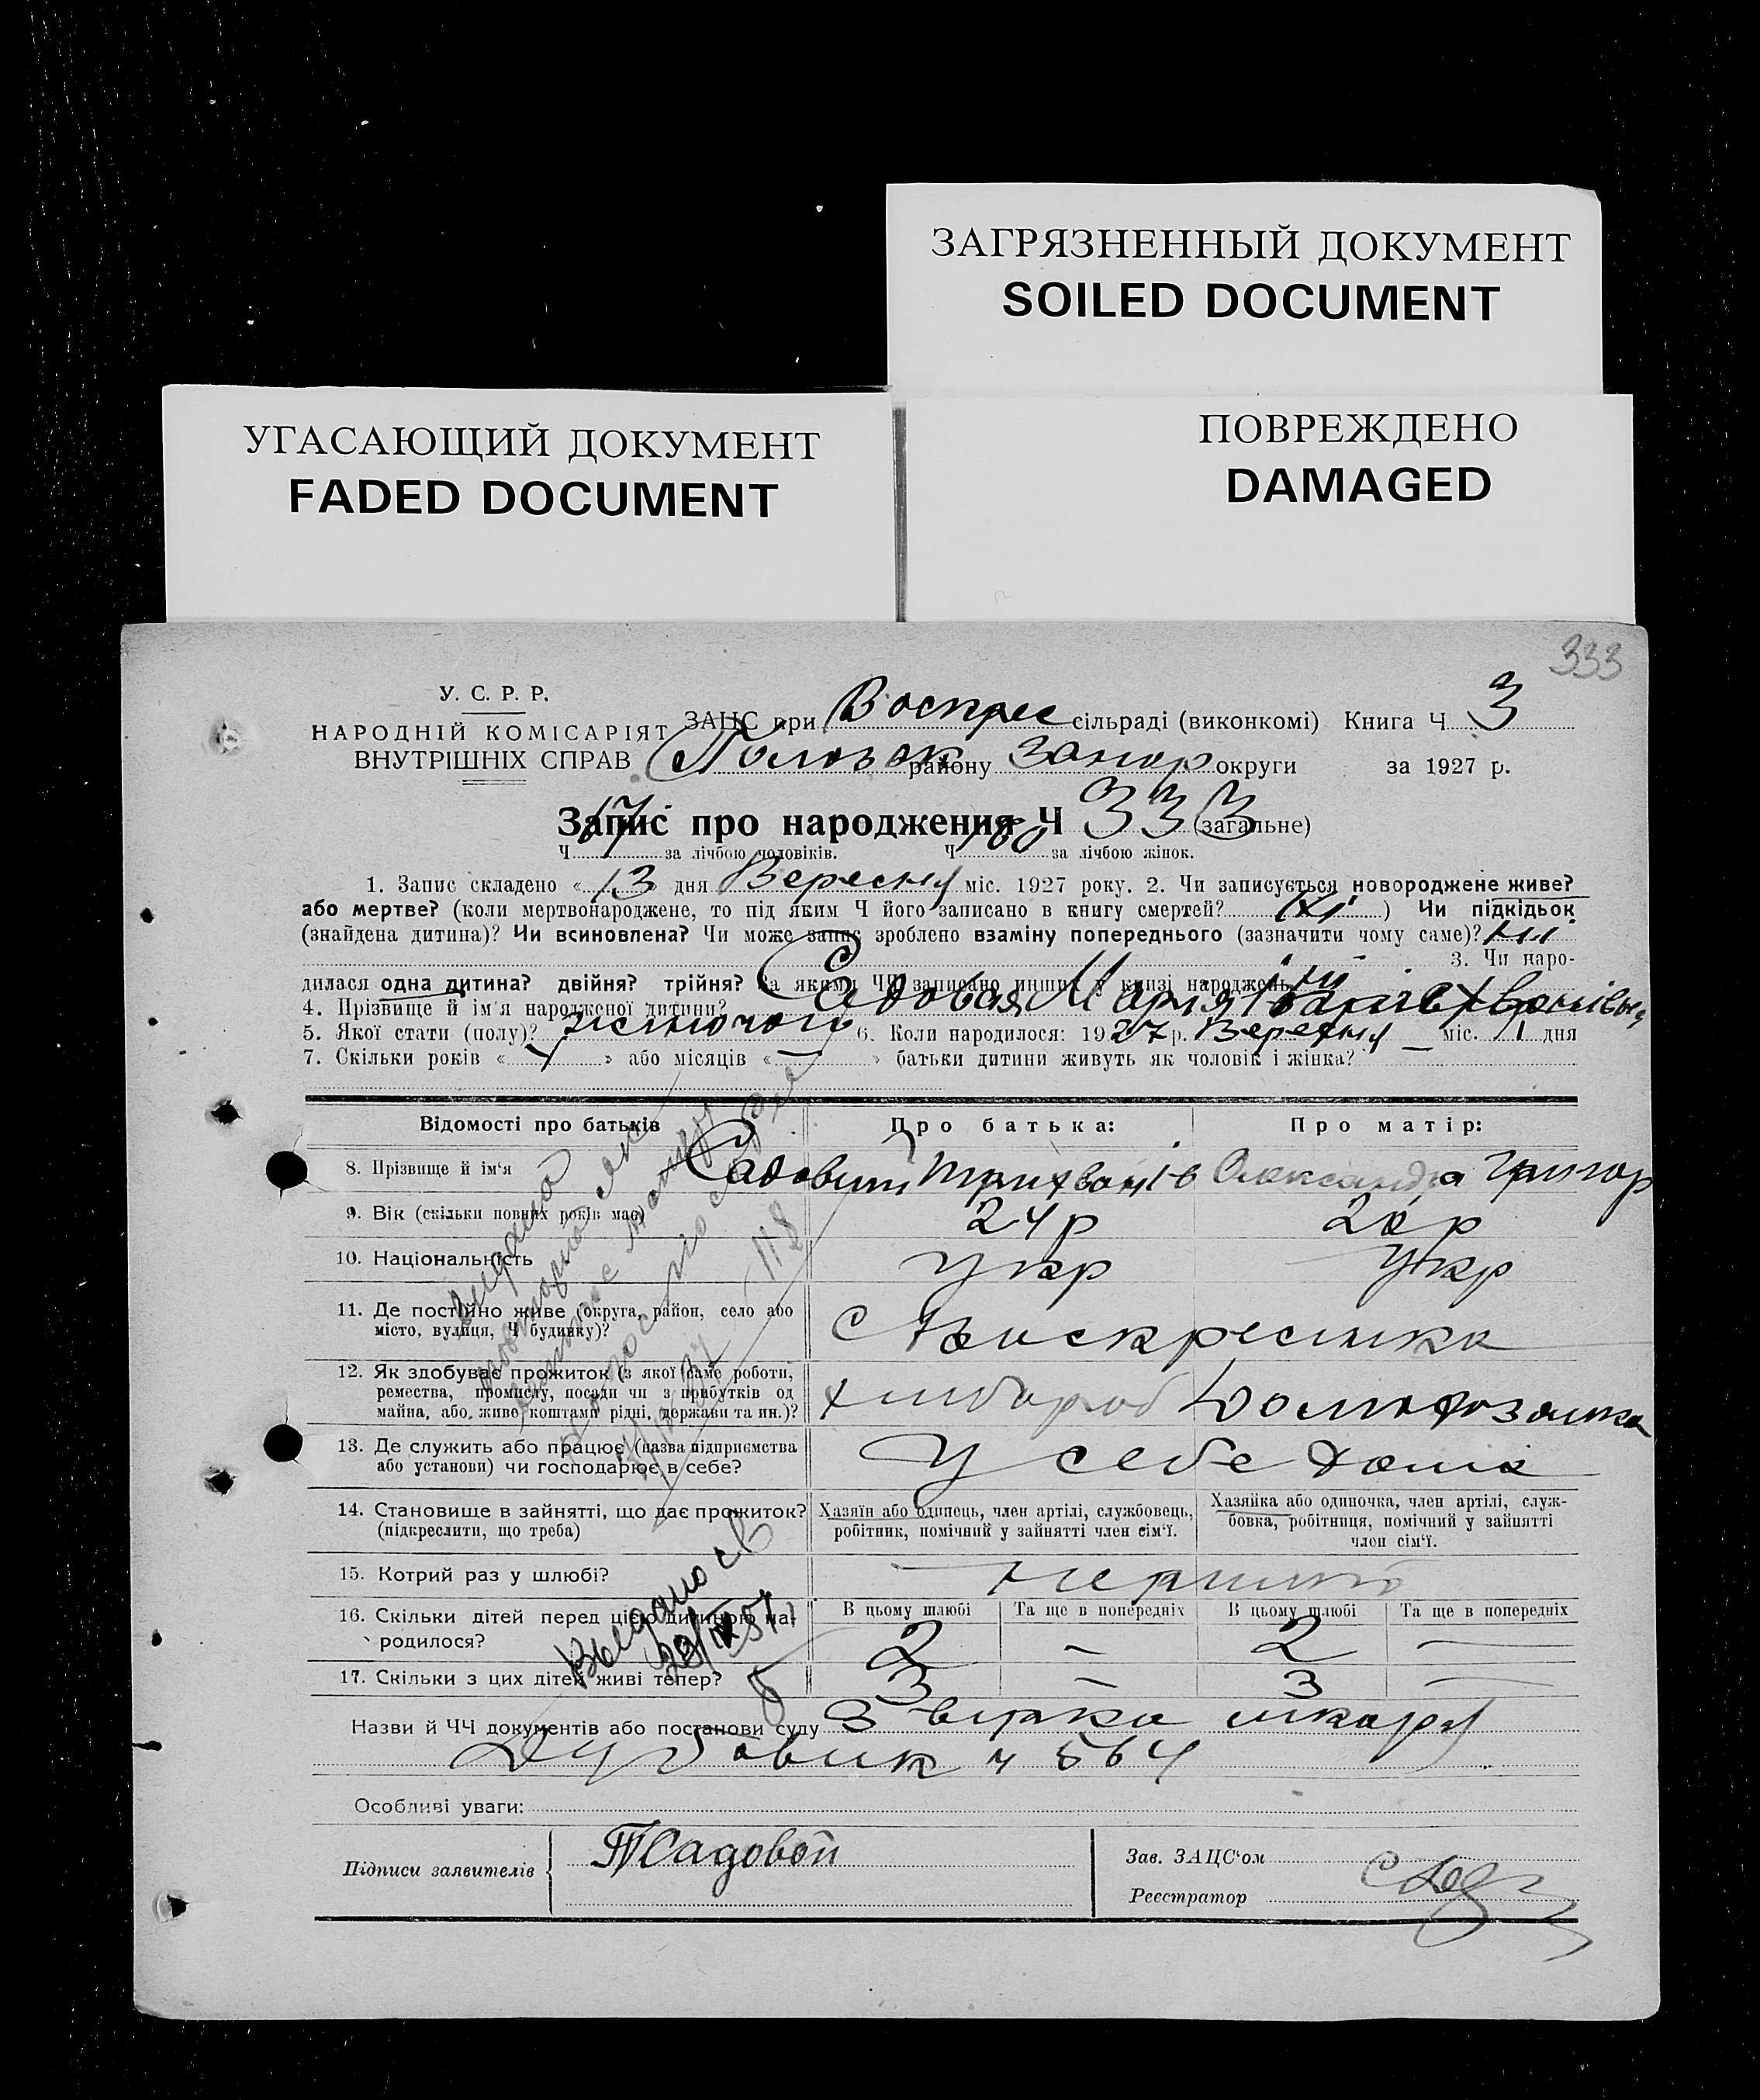 ЗАГРЯЗНЕННЫЙ ДОКУМЕНТ
SOILED DOCUMENT
УГАСАЮЩИЙ ДОКУМЕНТ
FADED DOCUMENT
ПОВРЕЖДЕНО
DAMAGED
333
У. С. Р. Р.
НАРОДНІЙ КОМІСАРІЯТ
ВНУТРІШНІХ СПРАВ
ЗАЦС при Воскрес сільраді (виконкомі) Книга Ч 3
району Запор округи за 1927 р.
Запис про народження Ч 333 (загальне)
Ч за лічбою чоловіків. Ч за лічбою жінок.
1. Запис складено «13» дня Вересня міс. 1927 року. 2. Чи записується новороджене живе?
або мертве? (коли мертвонароджене, то під яким Ч його записано в книгу смертей? ні) Чи підкідьок
(знайдена дитина)? Чи всиновлена? Чи може запис зроблено взаміну попереднього (зазначити чому саме)? ні
3. Чи наро-
дилася одна дитина? двійня? трійня? За якими ЧЧ записано инших у книзі народжень ні
4. Прізвище й ім'я народженої дитини? Садовая Мария
5. Якої стати (полу)? жіночого 6. Коли народилося: 1927 р. Вересня міс. 1 дня
7. Скільки років « » або місяців «—» батьки дитини живуть як чоловік і жінка?
Відомості про батьків Про батька: Про матір:
8. Прізвище й ім'я Садовий Олександра Григор
9. Вік (скільки повних років має) 24 р р
10. Національність Укр Укр
11. Де постійно живе (округа, район, село або
місто, вулиця, Ч будинку)? С Воскресинка
12. Як здобуває прожиток (з якої саме роботи,
ремества, промислу, посади чи з прибутків од
майна, або живе коштами рідні, держави та ин.)? хлибороб Домохозяйка
13. Де служить або працює (назва підприємства
або установи) чи господарює в себе? У себе дома
14. Становище в зайнятті, що дає прожиток?
(підкреслити, що треба)
Хазяїн або одинець, член артілі, службовець,
робітник, помічний у зайнятті член сім'ї.
Хазяйка або одиночка, член артілі, служ-
бовка, робітниця, помічний у зайнятті
член сім'ї.
15. Котрий раз у шлюбі? Перший
16. Скільки дітей перед цією дитиною на-
родилося?
В цьому шлюбі Та ще в попередніх В цьому шлюбі Та ще в попередніх
2 — 2 —
17. Скільки з цих дітей живі тепер? 3 — 3 —
Назви й ЧЧ документів або постанови суду
ч 564
Особливі уваги:
Підписи заявителів Садовой
Зав. ЗАЦС'ом
Реєстратор
Выдано св